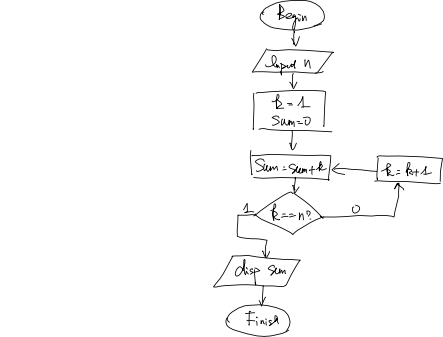 Begin
Input n
k = 1
Sum=0
Sum = sum + k
k = k+1
k == n?
1
0
disp sum
Finish